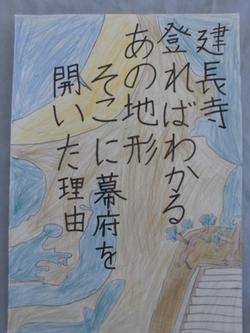 建長寺
登ればわかる
あの地形
そこに幕府を
開いた理由